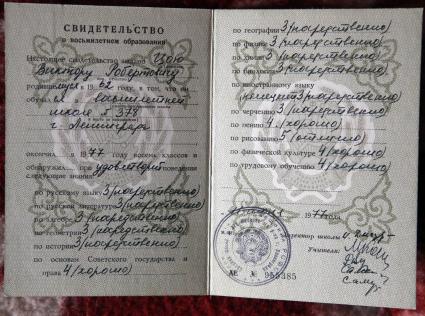 СВИДЕТЕЛЬСТВО
о восьмилетнем образовании
Настоящее свидетельство выдано Цою
Виктору Робертовичу
родившемуся в 1962 году, в том, что он
обучался в восьмилетней
школе № 378
г. Ленинграда
окончил в 1977 году восемь классов и
обнаружил при удовл поведении
следующие знания:
по русскому языку 3 /посредственно/
по русской литературе 3 /посредственно/
по алгебре 3 /посредственно/
по геометрии 3 /посредственно/
по истории 3 /посредственно/
по основам Советского государства и
права 4 /хорошо/
по географии 3 /посредственно/
по физике 3 /посредственно/
по химии 3 /посредственно/
по биологии 3 /посредственно/
по иностранному языку
немецкий 3 /посредственно/
по черчению 3 /посредственно/
по пению 4 /хорошо/
по рисованию 5 /отлично/
по физической культуре 4 /хорошо/
по трудовому обучению 4 /хорошо/
1977 года
Директор школы
Учителя: